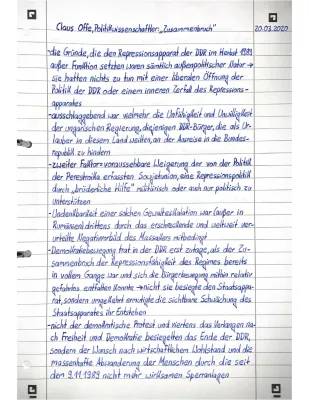 Claus Offe, Politikwissenschaftler: „Zusammenbruch" 20.03.2020
-die Gründe, die den Repressionsapparat der DDR im Herbst 1989
außer Funktion setzten waren sämtlich außenpolitischer Natur →
sie hatten nichts zu tun mit einer liberalen Öffnung der
Politik der DDR oder einem inneren Zerfall des Repressions-
apparates
-ausschlaggebend war vielmehr die Unfähigkeit und Unwilligkeit
der ungarischen Regierung, diejenigen DDR-Bürger, die als Ur-
lauber in diesem Land weilten, an der Ausreise in die Bundes-
republik zu hindern
-zweiter Faktor = voraussehbare Weigerung der von der Politik
der Perestroika erfassten Sowjetunion, eine Repressionspolitik
durch „brüderliche Hilfe" militärisch oder auch nur politisch zu
unterstützen
-Undenkbarkeit einer solchen Gewalteskalation war (außer in
Rumänien) drittens durch das erschreckende und weltweit ver-
urteilte Negativvorbild des Massakers mitbedingt
-Demokratiebewegung trat in der DDR erst zutage, als der Zu-
sammenbruch der Repressionsfähigkeit des Regimes bereits
in vollem Gange war und sich die Bürgerbewegung mithin relativ
gefahrlos entfalten konnte → nicht sie besiegte den Staatsappa-
rat, sondern umgekehrt ermutigte die sichtbare Schwächung des
Staatsapparates ihr Entstehen
-nicht der demokratische Protest und viertens das Verlangen na-
ch Freiheit und Demokratie besiegelten das Ende der DDR,
sondern der Wunsch nach wirtschaftlichem Wohlstand und die
massenhafte Abwanderung der Menschen durch die seit
dem 9.11.1989 nicht mehr wirksamen Sperranlagen